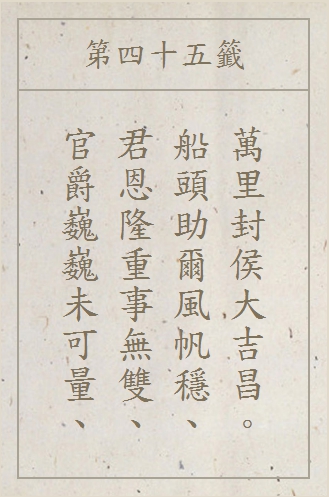 第四十五籤
官爵巍巍未可量、
君恩隆重事無雙、
船頭助爾風帆穩、
萬里封侯大吉昌。